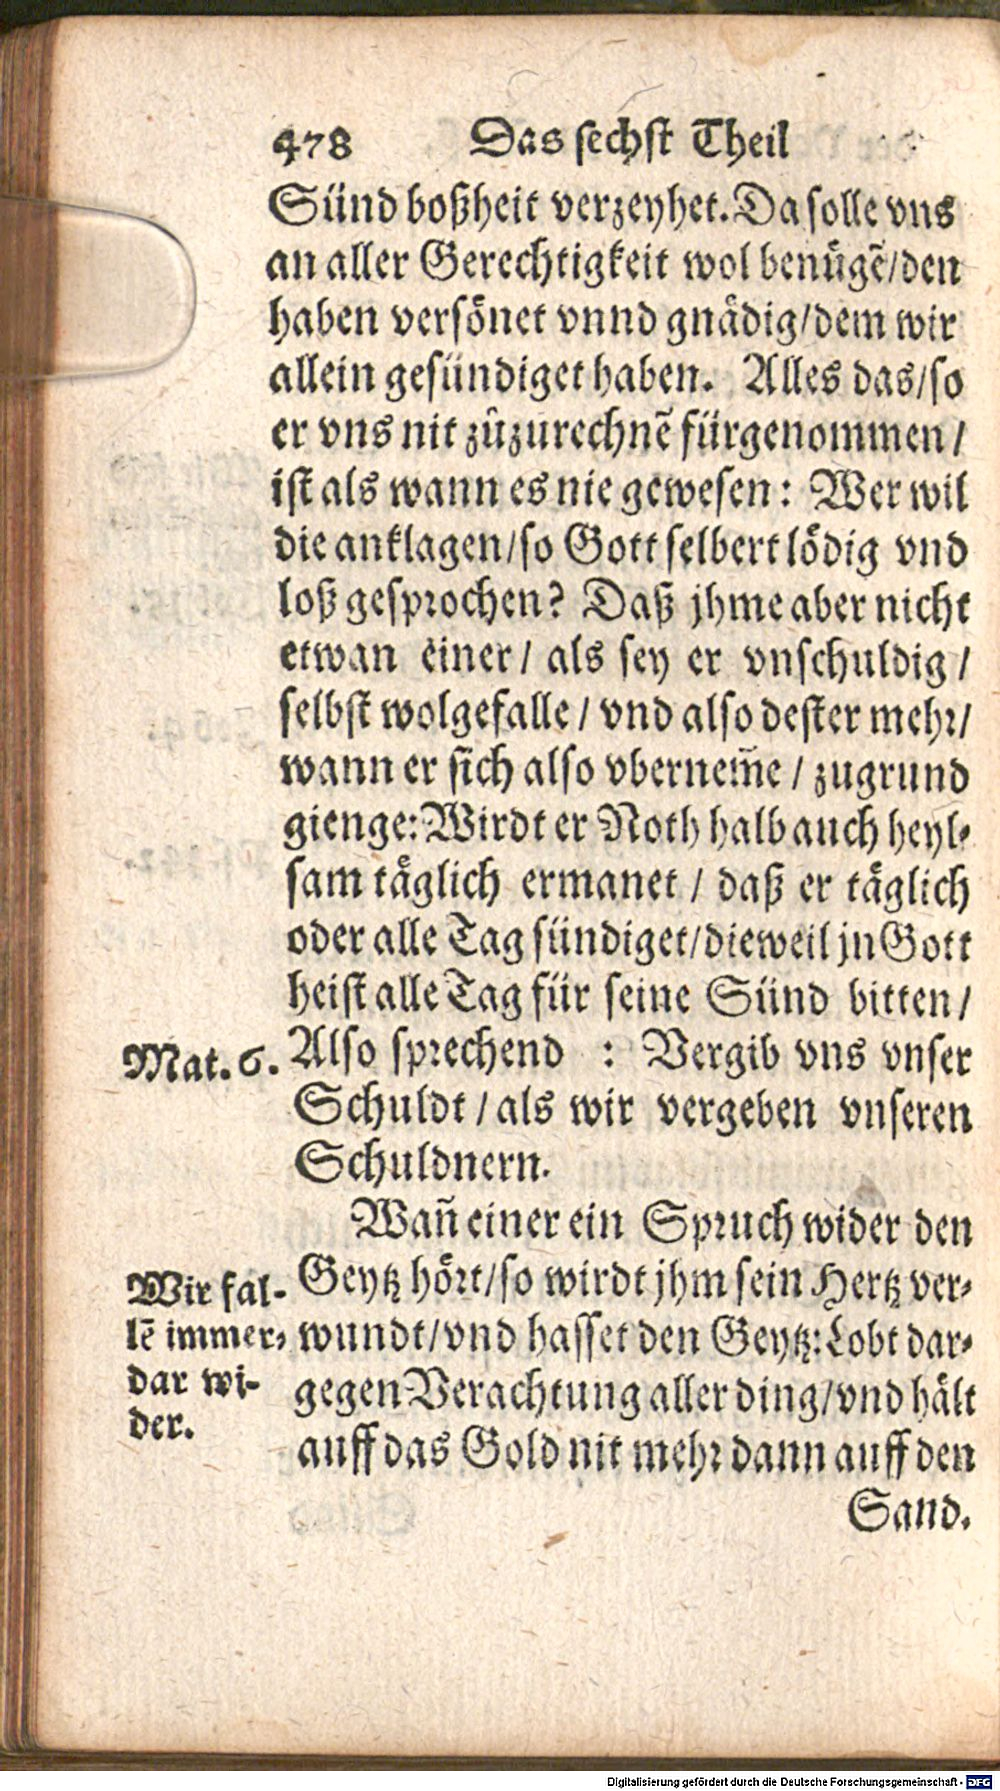 478 Das sechst Theil
Sünd boßheit verzeyhet. Da solle vns
an aller Gerechtigkeit wol benůgẽ/den
haben versönet vnnd gnädig/dem wir
allein gesündiget haben. Alles das/so
er vns nit zůzurechnẽ fürgenommen/
ist als wann es nie gewesen: Wer wil
die anklagen/so Gott selbert lödig vnd
loß gesprochen? Daß jhme aber nicht
etwan einer/ als sey er vnschuldig/
selbst wolgefalle/ vnd also dester mehr/
wann er sich also vbernem̃e/ zugrund
gienge: Wirdt er Noth halb auch heyl-
sam täglich ermanet/ daß er täglich
oder alle Tag sündiget/dieweil jn Gott
heist alle Tag für seine Sünd bitten/
Mat. 6. Also sprechend : Vergib vns vnser
Schuldt/als wir vergeben vnseren
Schuldnern.
Wañ einer ein Spruch wider den
Geytz hört/so wirdt jhm sein Hertz ver-
wundt/vnd hasset den Geytz: Lobt dar-
gegen Verachtung aller ding/vnd hält
auff das Gold nit mehr dann auff den
Sand.
Wir fal-
lẽ immer-
dar wi-
der.
Digitalisierung gefördert durch die Deutsche Forschungsgemeinschaft - DFG